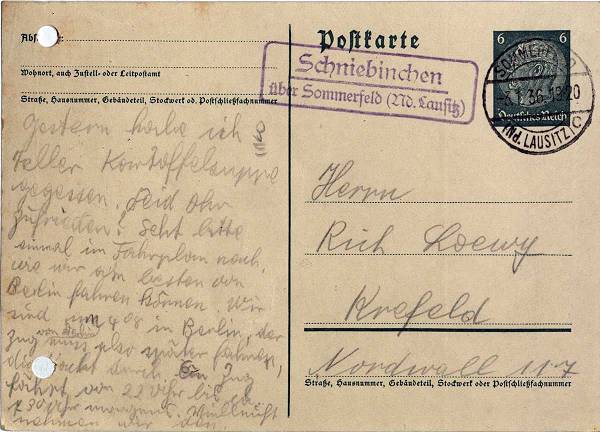 Abs.:
Wohnort, auch Zustell- oder Leitpostamt
Straße, Hausnummer, Gebäudeteil, Stockwerk od. Postschließfachnummer
Postkarte
Schniebinchen
über Sommerfeld (Nd. Lausitz)
6 6
Deutsches Reich
SOMMERFELD
36.1920
(Nd. LAUSITZ) C
Gestern habe ich
Teller Kartoffelsuppe
gegessen. Seid Ihr
zufrieden? Seht bitte
einmal im Fahrplan nach,
wie wir am besten von
Berlin fahren können. Wir
sind um 4 08 in Berlin, der
Zug muss also später fahren,
die Nacht durch. Ein Zug
fährt von 22 Uhr bis
7 30 Uhr morgens. Vielleicht
nehmen wir den.
Herrn
Rich Loewy
Krefeld
Nordwall 117
Straße, Hausnummer, Gebäudeteil, Stockwerk oder Postschließfachnummer